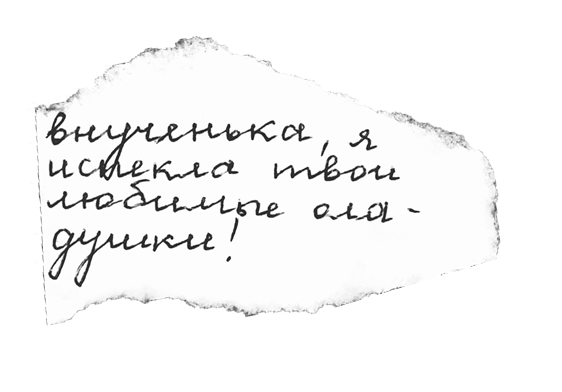 внученька, я
испекла твои
любимые ола-
душки!